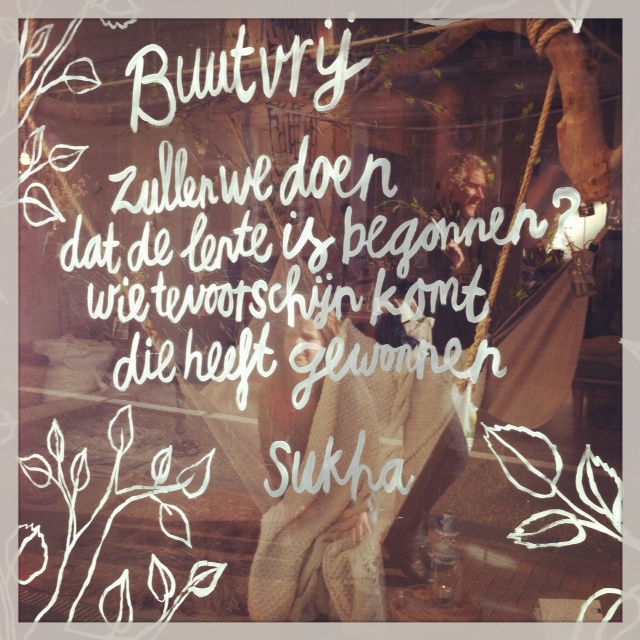 Buutvrij
zullen we doen
dat de lente is begonnen?
wie tevoorschijn komt
die heeft gewonnen
Sukha